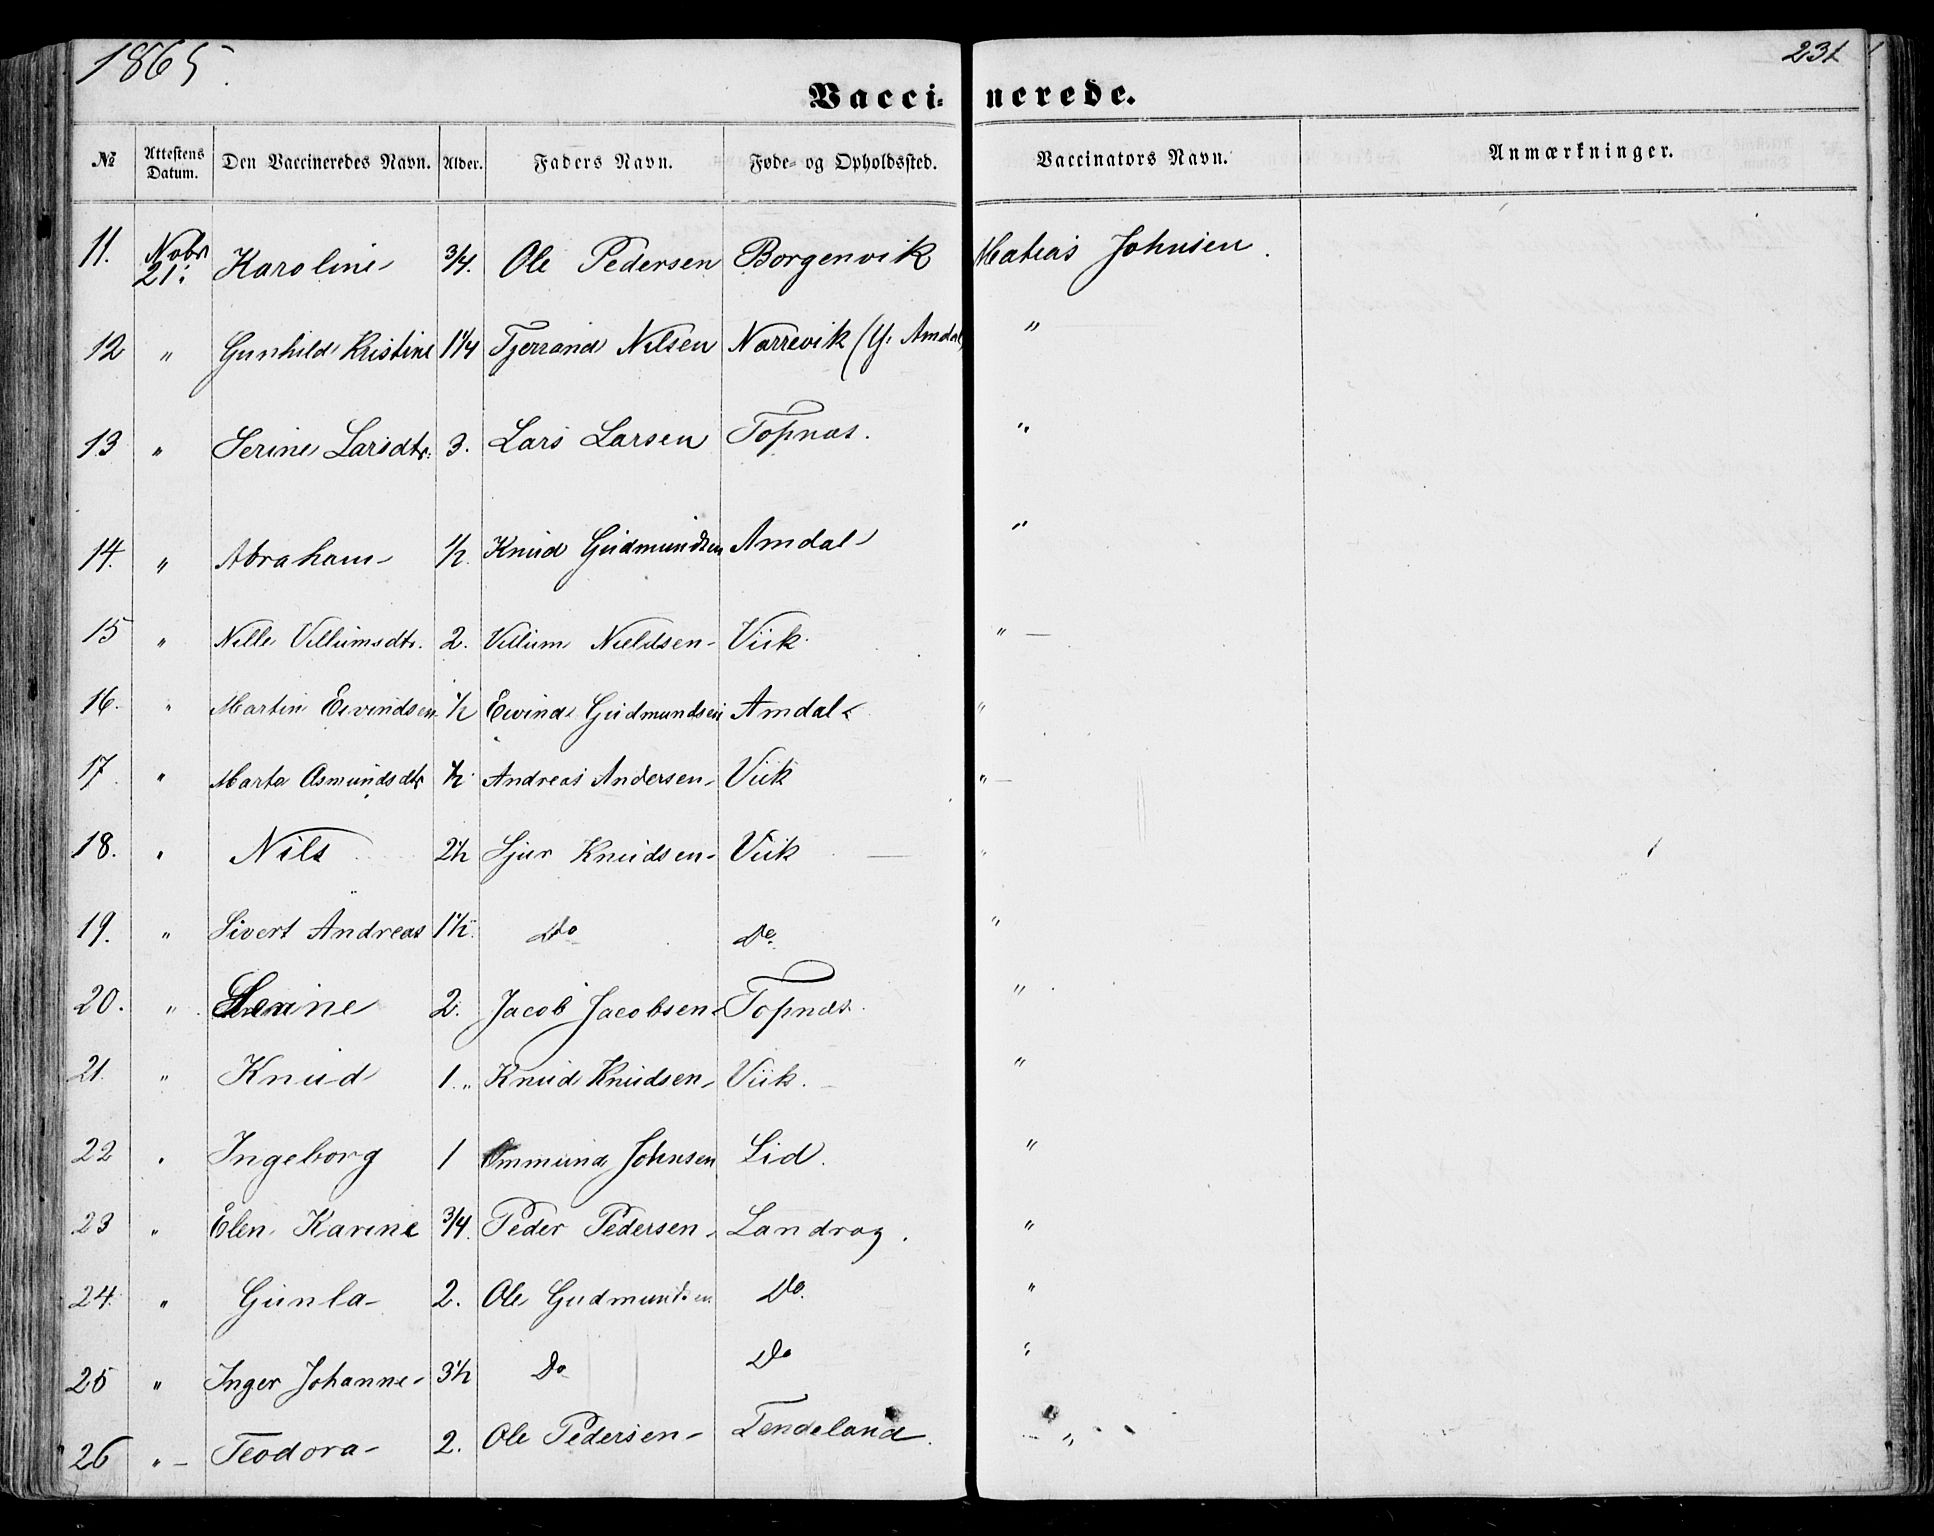 1865. 231
Vaccinerede.
№ Attestens Datum. Den Vaccineredes Navn. Alder. Faders Navn. Føde- og Opholdssted. Vaccinators Navn. Anmærkninger.
11. Novbr 21. Karoline 3/4. Ole Pedersen Borgenvik Matias Johnsen.
12 " Gunhild Kristine 1 1/4 Tjerrand Nilsen Narrevik (Y. Amdal) "
13 " Serine Larsdtr. 3. Lars Larsen Topnas. "
14. " Abraham 1/2. Knud Gudmundsen Amdal "
15 " Nille Villumsdtr. 2. Villum Nieldsen Viik. "
16. " Martin Eivindsen 1/2 Eivind Gudmundsen Amdal "
17. " Marta Asmundsdtr 1/2. Andreas Andersen Viik "
18. " Nils 2 1/2 Sjur Knudsen Viik "
19. " Sivert Andreas 1 1/2. Do Do. "
20. " Serine 2. Jacob Jacobsen Topnas. "
21. " Knud 1. " Knud Knudsen Viik. "
22 " Ingeborg 1 Ommund Johnsen Lid. "
23 " Elen Karine 3/4. Peder Pedersen Landrog. "
24. " Gunla 2. Ole Gudmundsen Do. "
25 " Inger Johanne 3 1/2 Do Do "
26 " Teodora 2. Ole Pedersen Tendeland. "